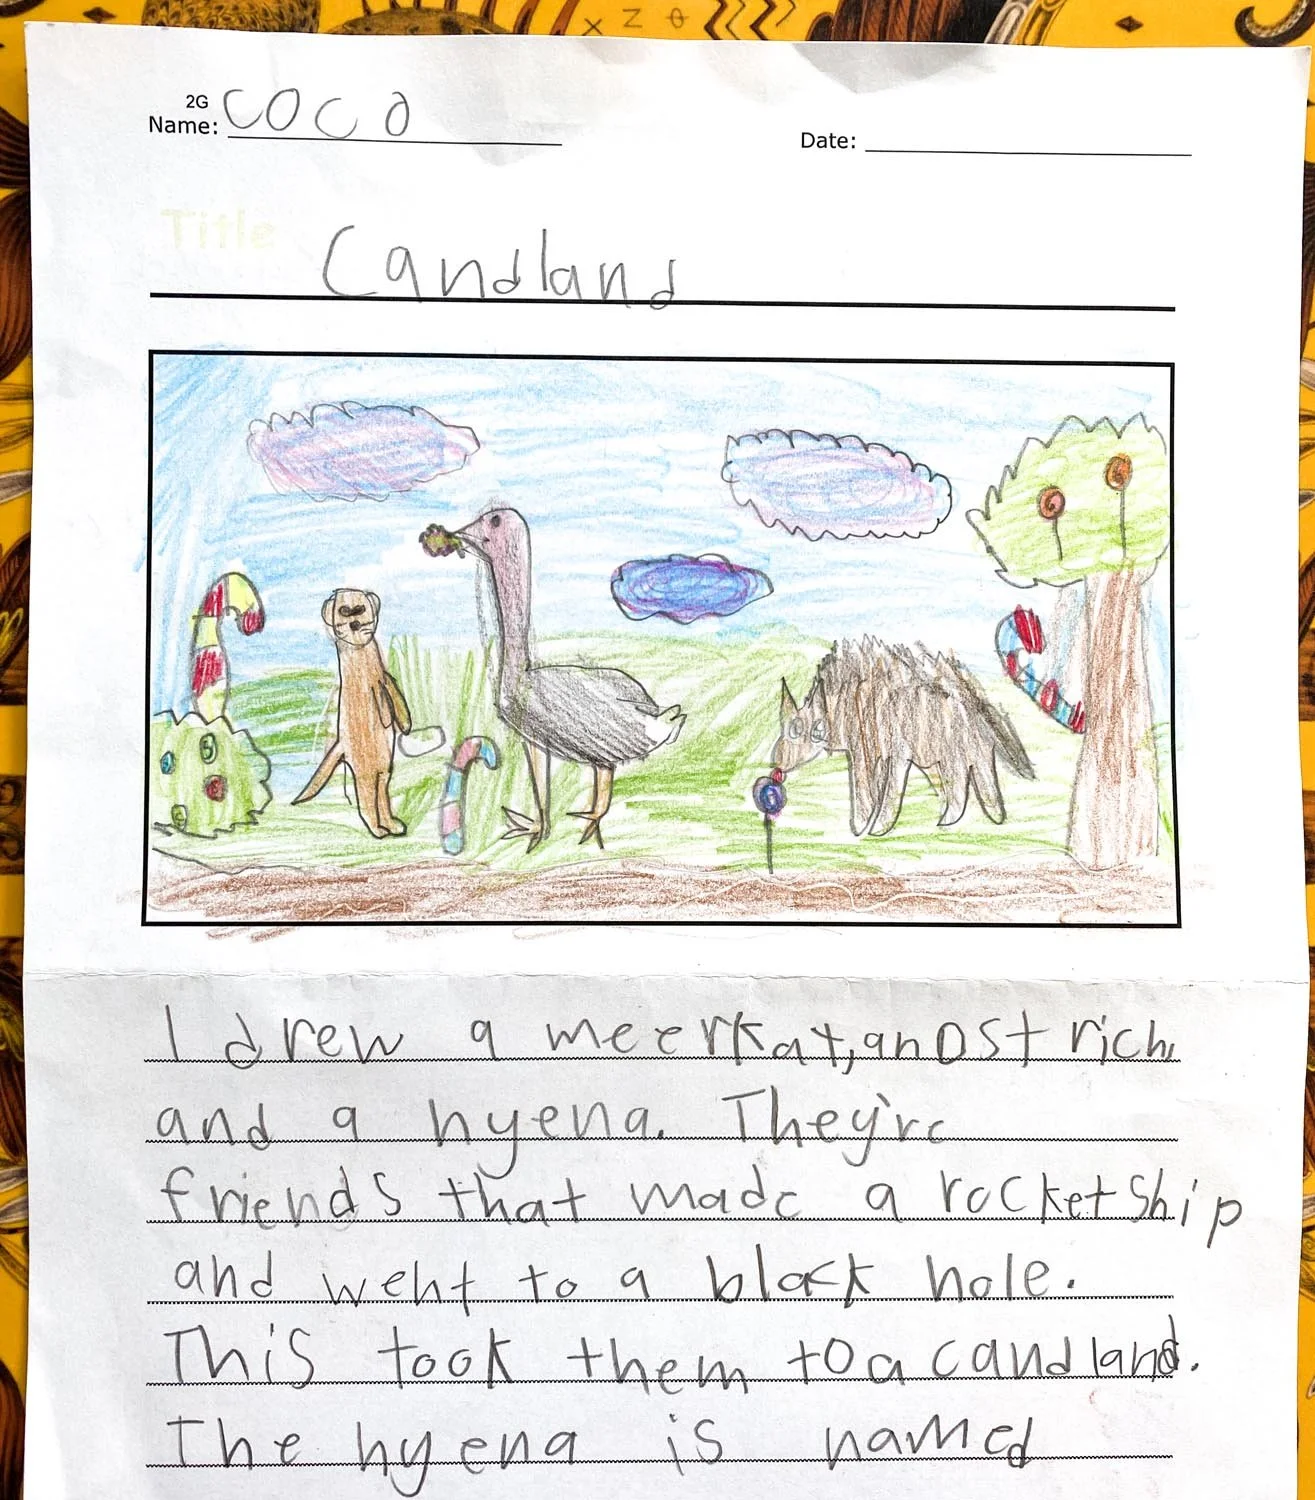 x z θ
2G
Name: Coco
Date:
Title Candland
I drew a meerkat, an Ostrich,
and a hyena. They're
friends that made a rocket ship
and went to a black hole.
This took them to a candland.
The hyena is named